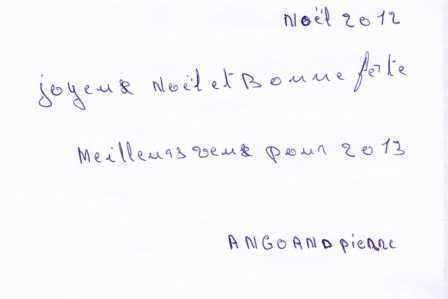 Noël 2012
joyeux Noël et Bonne fete
Meilleurs veux pour 2013
ANGOAND pierre